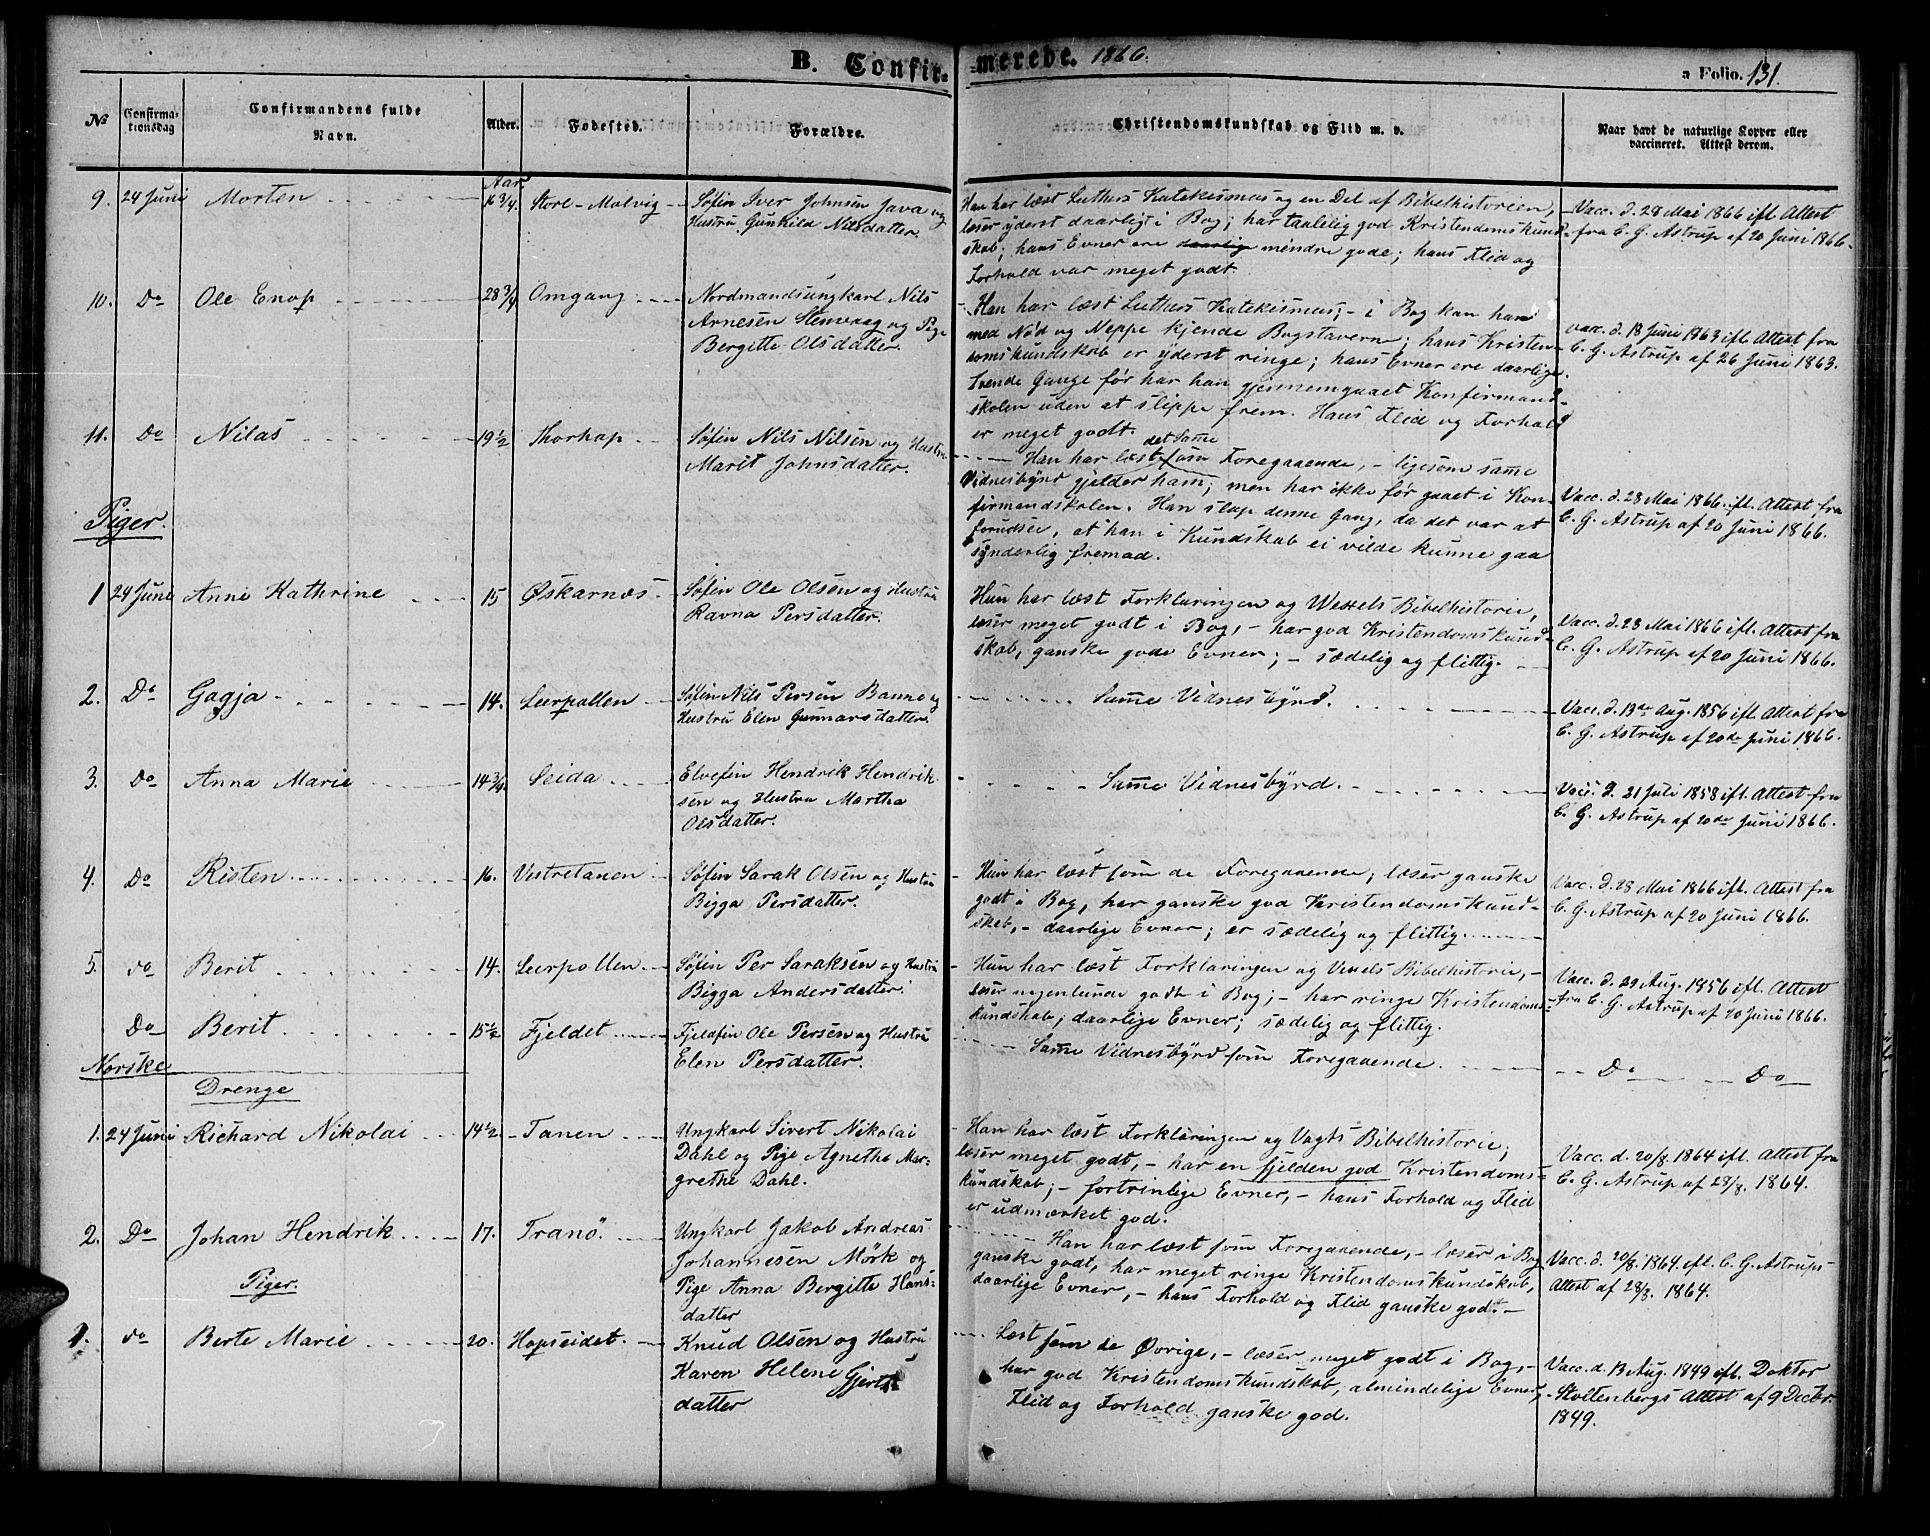 B. Confir- merede. 1866.
a Folio. 131.
No
Confirma-
tionsdag
Confirmandens fulde
Navn.
Alder.
Fødested.
Forældre.
Christendomskundskab og Flid m. v.
Naar havt de naturlige Kopper eller
vaccineret. Attest derom.
Aar
9. 24 Juni Morten 16 3/4. Store-Molvig Søfin Iver Johnsen Java og
Hustru Gunhild Nilsdatter.
Han har læst Luthers Katekismus og en Del af Bibelhistorien,
læser yderst daarligt i Bog; har taalelig god Kristendomskund-
skab; hans Evner ere daarlige mindre gode; hans Flid og
Forhold var meget godt.
Vacc. d. 28 Mai 1866 ifl. Attest
fra C. G. Astrup af 20 Juni 1866.
10. Do Ole Enop 28 3/4 Omgang Nordmandsungkarl Nils
Arnesen Stenvaag og Pige
Bergitte Olsdatter.
Han har læst Luthers Katekismus; - i Bog kan han
med Nød og Neppe kjende Bogstaverne; hans Kristen-
domskundskab er yderst ringe; hans Evner ere daarlige.
Trende Gange før har han gjennemgaaet Konfirmand-
skolen uden at slippe frem. Hans Flid og Forhold
er meget godt.
vacc. d. 18 Juni 1863 ifl. Attest fra
C. G. Astrup af 26 Juni 1863.
11. Do Nilas 19 1/2 Thorhop Søfin Nils Nilsen og Hustru
Marit Johnsdatter.
det Same
Han har læst som Foregaaende, - ligesom same
Vidnesbyrd gjelder ham; men har ikke før gaaet i Kon-
firmandskolen. Han slap denne Gang, da det var at
forudsee, at han i Kundskab ei vilde kunne gaa
synderlig fremad.
Vacc. d. 28 Mai 1866 ifl. Attest fra
C. G. Astrup af 20 Juni 1866.
Piger.
1 24 Juni Anne Kathrine 15 Øskarnæs Søfin Ole Olsen og Hustru
Ravna Persdatter.
Hun har læst Forklaringen og Wexels Bibelhistorie,
læser meget godt i Bog, - har god Kristendomskund-
skab, ganske gode Evner; - sædelig og flittig.
Vacc. d. 28 Mai 1866 ifl. Attest fra
C. G. Astrup af 20 Juni 1866.
2. Do Gagja 14. Leerpollen Søfin Nils Persen Banne og
Hustru Elen Gunnarsdatter.
Same Vidnesbyrd.
Vacc. d. 13de Aug. 1856 ifl. Attest fra
C. G. Astrup af 20de Juni 1866.
3. Do Anna Marie 14 3/4. Seida Elvefin Hendrik Hendrik-
sen og Hustru Martha
Olsdatter.
Same Vidnesbyrd.
Vacc. d. 21 Juli 1858 ifl. Attest fra
C. G. Astrup af 20de Juni 1866.
4. Do Risten 16. Vestretanen Søfin Sarak Olsen og Hustru
Bigga Persdatter.
Hun har læst som de Foregaaende; læser ganske
godt i Bog, har ganske god Kristendomskund-
skab, - daarlige Evner; er sædelig og flittig.
Vacc. d. 28 Mai 1866 ifl. Attest fra
C. G. Astrup af 20 Juni 1866.
5. do Berit 14. Leerpollen Søfin Per Saraksen og Hustru
Bigga Andersdatter.
Hun har læst Forklaringen og Vexels Bibelhistorie, -
læser nogenlunde godt i Bog; - har ringe Kristendoms-
kundskab; daarlige Evner; sædelig og flittig.
Vacc. d. 29 Aug. 1856 ifl. Attest
fra C. G. Astrup af 20 Juni 1866.
Do Berit 15 1/2 Fjeldet Fjeldfin Ole Persen og Hustru
Elen Persdatter.
Same Vidnesbyrd som Foregaaende.
Do Do
Norske
Drenge
1. 24 Juni Richard Nikolai 14 1/2. Tanen Ungkarl Sivert Nikolai
Dahl og Pige Agnethe Mar-
grethe Dahl.
Han har læst Forklaringen og Vogts Bibelhistorie;
læser meget godt, - har en sjelden god Kristendoms-
kundskab; - fortrinlige Evner, - hans Forhold og Flid
er udmærket god.
Vacc. d. 20/8. 1864 ifl. Attest fra
C. G. Astrup af 28/8. 1864.
2. Do Johan Hendrik 17. Tranö. Ungkarl Jakob Andreas
Johannesen Mörk og
Pige Anna Bergitte Hans-
datter
Han har læst som Foregaaende, - læser i Bog
ganske godt, har meget ringe Kristendomskundskab,
daarlige Evner, - hans Forhold og Flid ganske godt. -
Vacc. d. 20/8. 1864. ifl. C. G. Astrups
Attest af 28/8. 1864.
Piger.
1. do Berte Marie 20. Hopseidet. Knud Olsen og Hustru
Karen Helene Gjerts-
datter
Læst som de Øvrige, - læser meget godt i Bog, -
har god Kristendomskundskab, almindelige Evner,
Flid og Forhold ganske god.
Vacc. d. 13 Aug. 1849 ifl. Doktor
Stoltenbergs Attest af 9 Decbr.
1849.